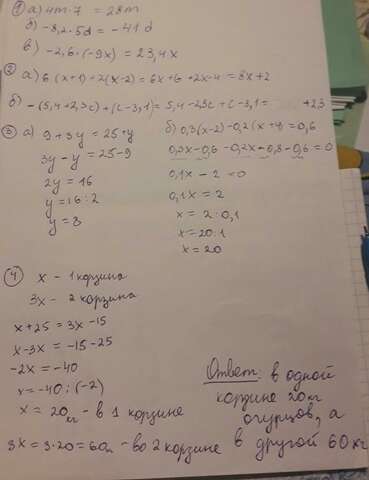 ① а) 4m · 7 = 28m
б) -8,2 · 5d = -41d
в) -2,6 · (-9x) = 23,4x
② а) 6(x+1)+2(x-2) = 6x+6+2x-4 = 8x+2
б) -(5,4+2,3c)+(c-3,1) = 5,4-2,3c+c-3,1= +2,3
③ а) 9+3y = 25+y
3y-y = 25-9
2y = 16
y = 16:2
y = 8
б) 0,3(x-2)-0,2(x+4)=0,6
0,3x-0,6-0,2x-0,8-0,6=0
0,1x-2=0
0,1x=2
x = 2:0,1
x = 20:1
x = 20
④ x - 1 корзина
3x - 2 корзина
x+25 = 3x-15
x-3x = -15-25
-2x = -40
x = -40:(-2)
x = 20кг - в 1 корзине
3x = 3·20 = 60 - во 2 корзине
Ответ: в одной
корзине 20кг
огурцов, а
в другой 60 кг